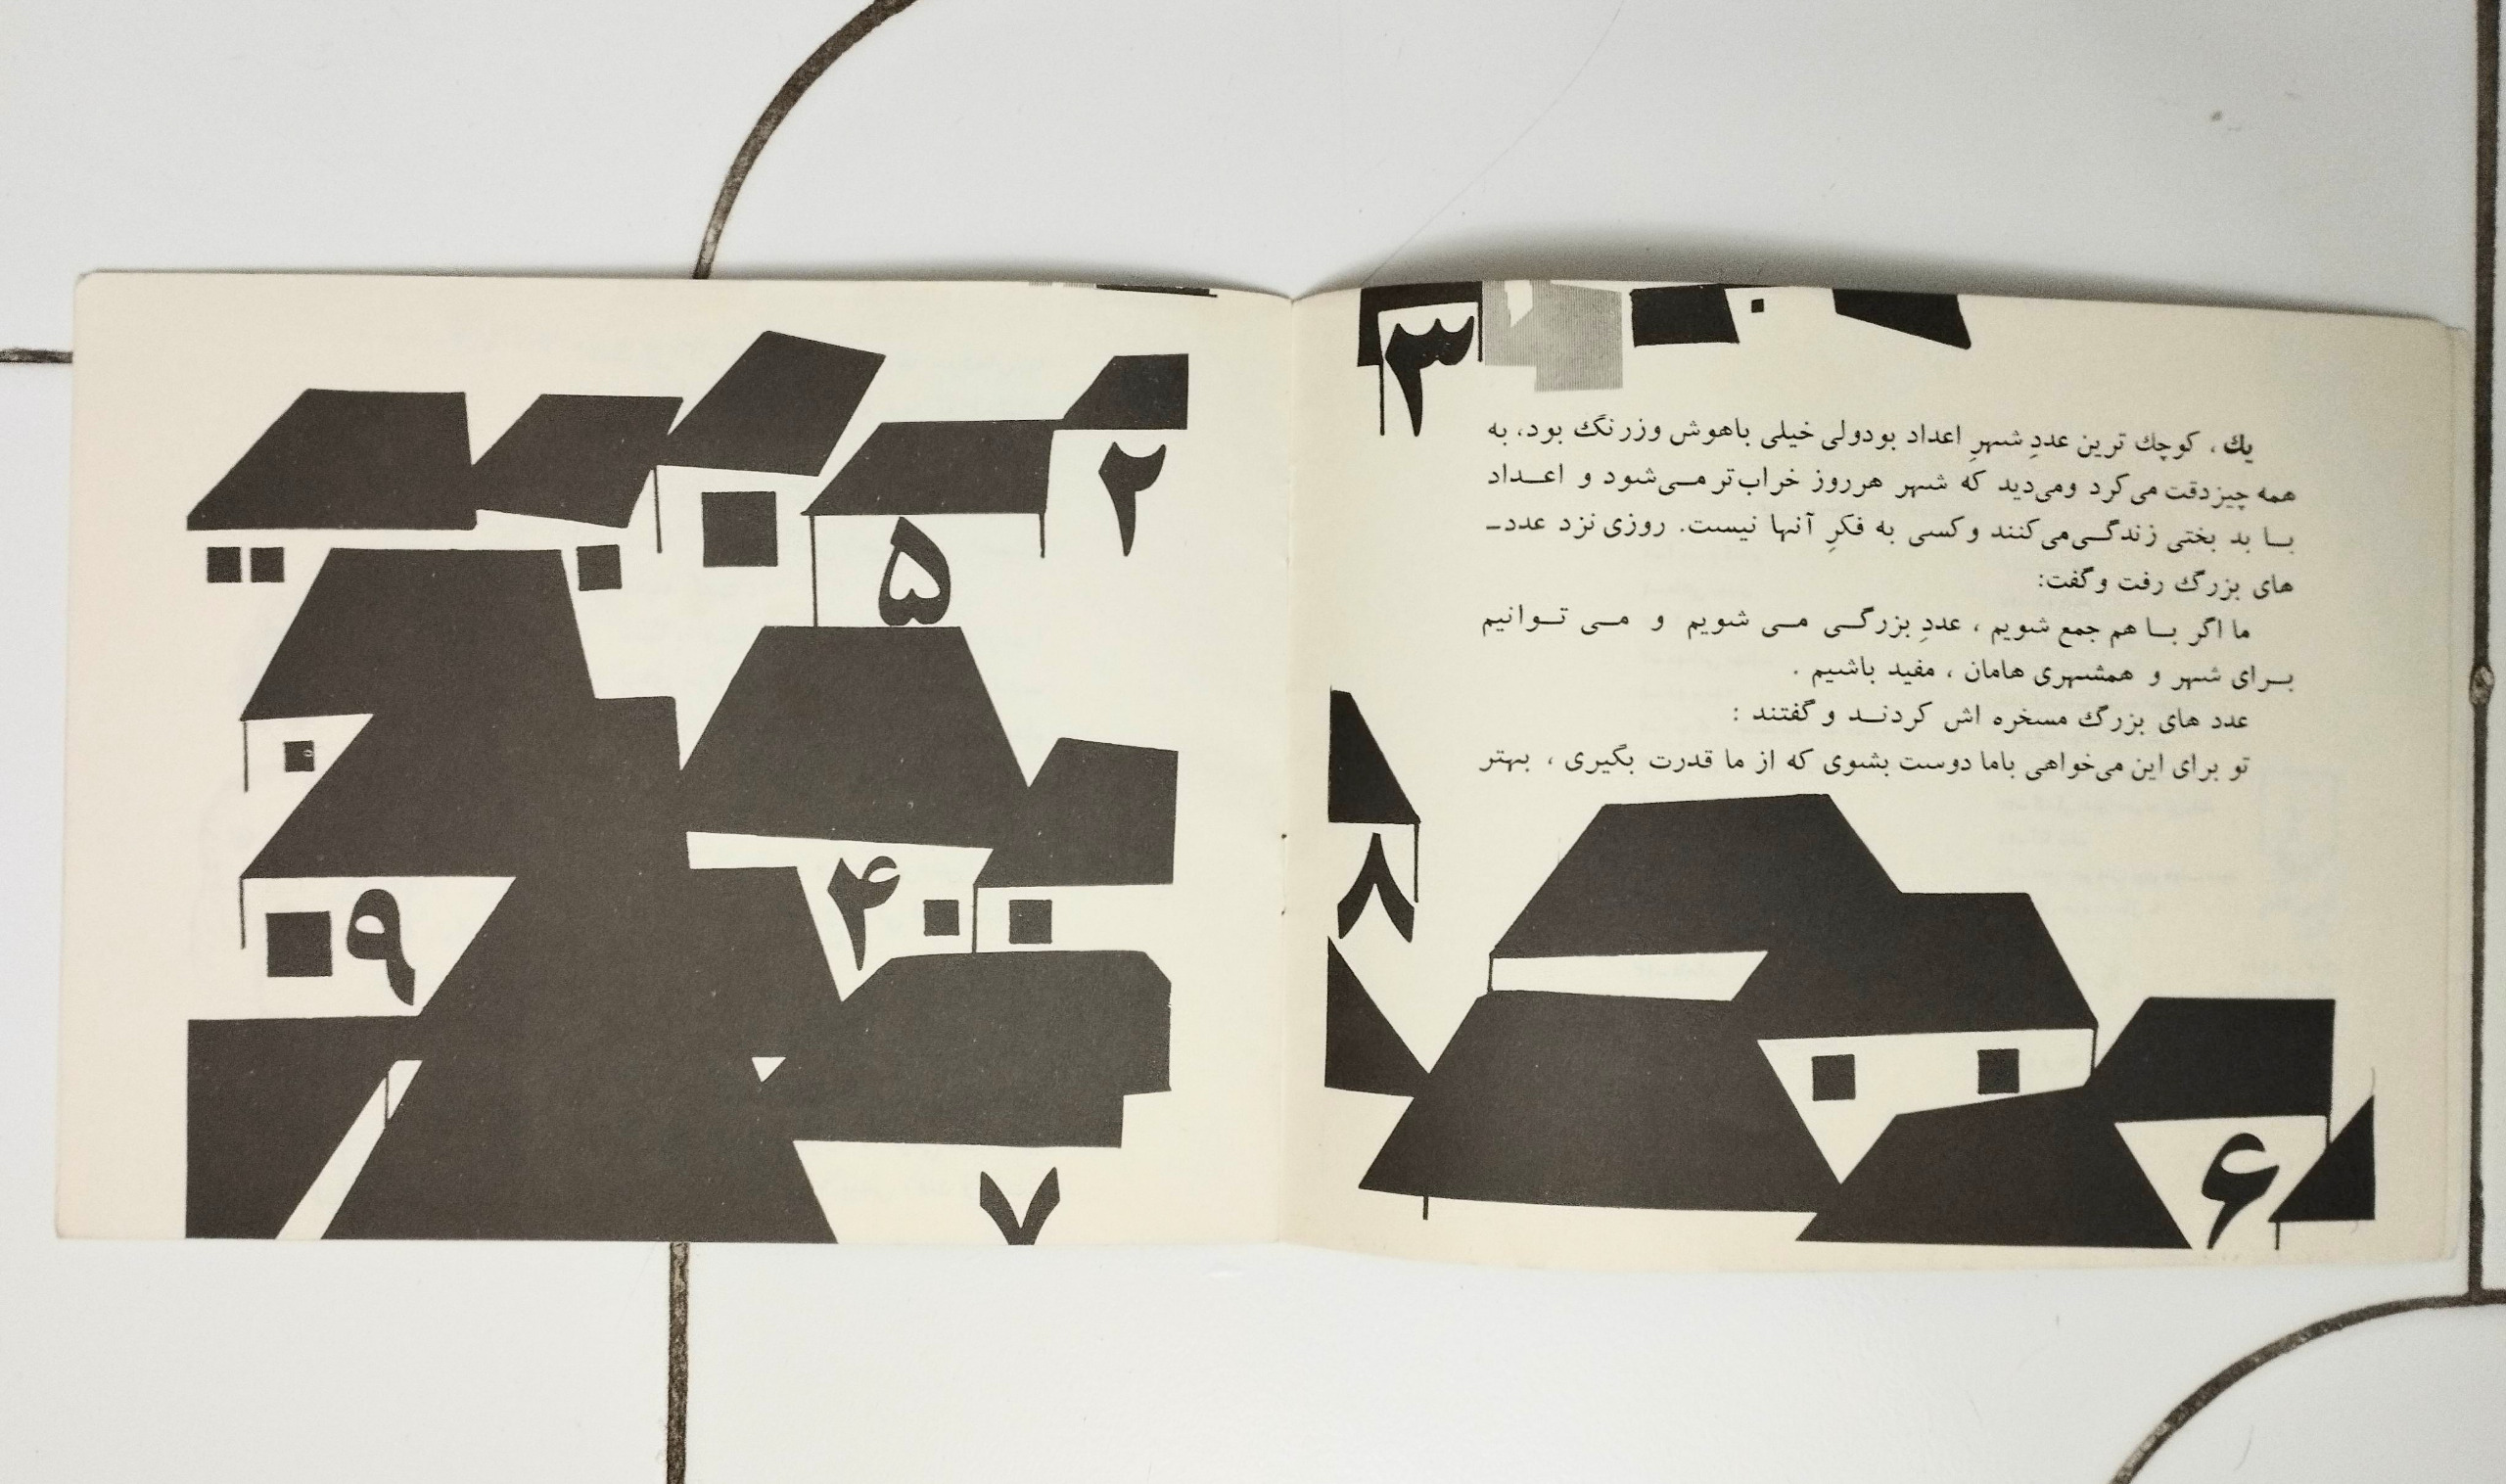 ۳
یك ، کوچك ترین عددِ شهرِ اعداد بودولی خیلی باهوش وزرنگ بود، به
همه چیزدقت می‌کرد ومی‌دید که شهر هرروز خراب‌تر مــی‌شود و اعــداد
بــا بد بختی زندگــی‌می‌کنند وکسی به فکرِ آنها نیست. روزی نزد عدد–
های بزرگ رفت وگفت:
ما اگر بــا هم جمع شویم ، عددِ بزرگــی مــی شویم و مــی تــوانیم
بــرای شهر و همشهری هامان ، مفید باشیم .
عدد های بزرگ مسخره اش کردنــد وگفتند :
تو برای این می‌خواهی باما دوست بشوی که از ما قدرت بگیری ، بهتر
۸
۶
۲
۵
۴
۹
۷